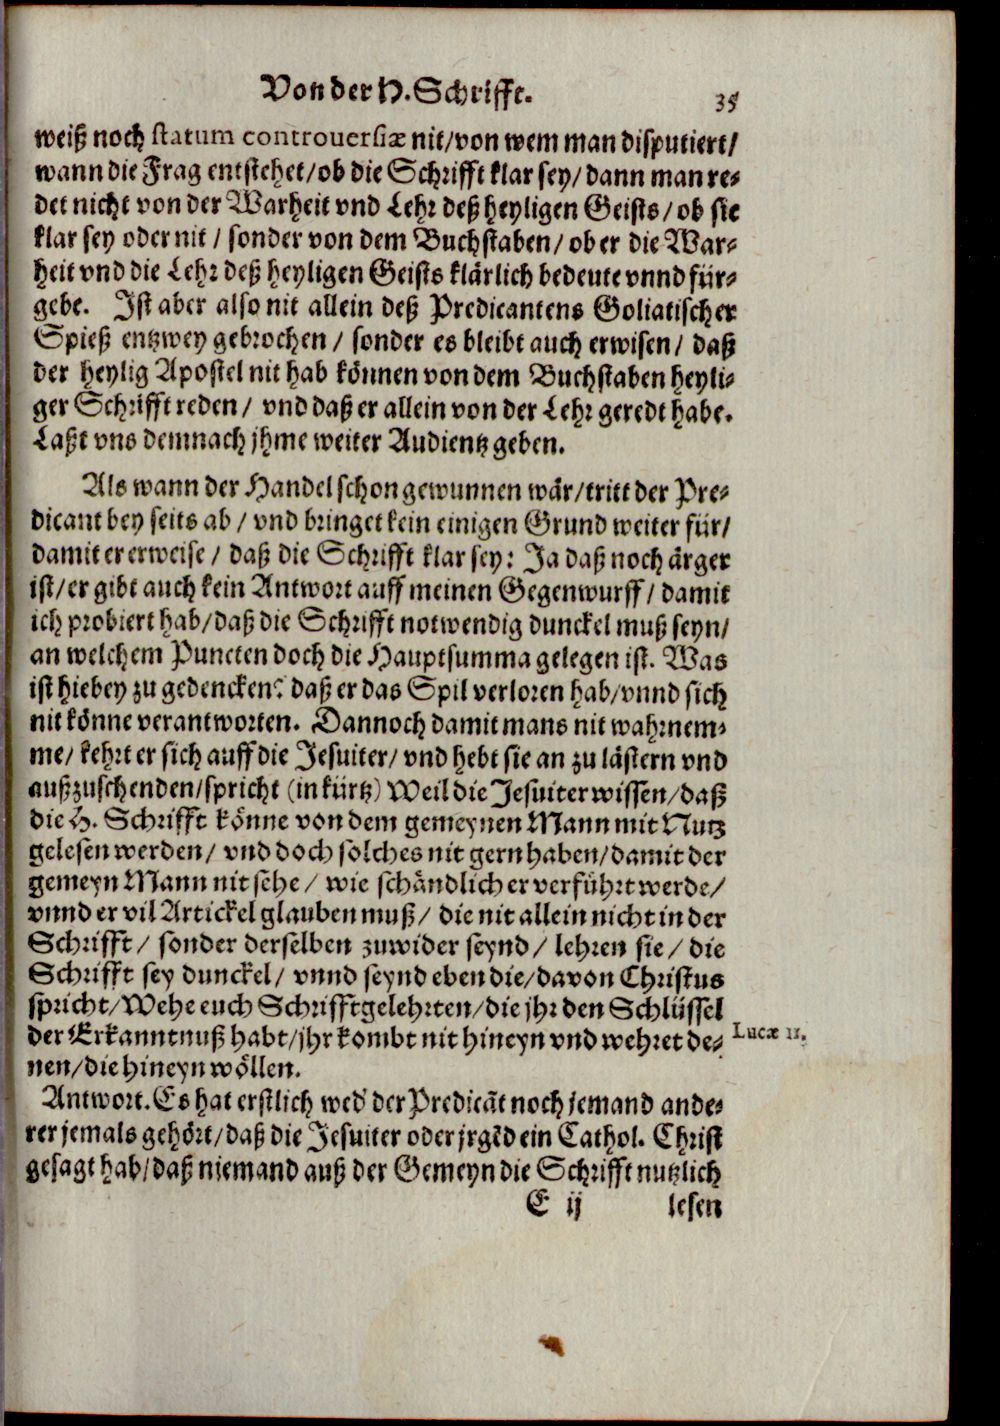 Von der H. Schrifft.
35
weiß noch statum controuersiæ nit/von wem man disputiert/
wann die Frag entstehet/ob die Schrifft klar sey/dann man re-
det nicht von der Warheit vnd Lehr deß heyligen Geists/ob sie
klar sey oder nit/sonder von dem Buchstaben/ob er die War-
heit vnd die Lehr deß heyligen Geists klärlich bedeute vnnd für-
gebe. Ist aber also nit allein deß Predicantens Goliatischer
Spieß entzwey gebrochen/sonder es bleibt auch erwisen/daß
der heylig Apostel nit hab können von dem Buchstaben heyli-
ger Schrifft reden/vnd daß er allein von der Lehr geredt habe.
Laßt vns demnach jhme weiter Audientz geben.
Als wann der Handel schon gewunnen wär/tritt der Pre-
dicant bey seits ab/vnd bringet kein einigen Grund weiter für/
damit er erweise/daß die Schrifft klar sey: Ja daß noch ärger
ist/er gibt auch kein Antwort auff meinen Gegenwurff/damit
ich probiert hab/daß die Schrifft notwendig dunckel muß seyn/
an welchem Puncten doch die Hauptsumma gelegen ist. Was
ist hiebey zu gedencken? daß er das Spil verloren hab/vnnd sich
nit könne verantworten. Dannoch damit mans nit wahrnem-
me/kehrt er sich auff die Jesuiter/vnd hebt sie an zu lästern vnd
außzuschenden/spricht (in kürtz) Weil die Jesuiter wissen/daß
die H. Schrifft könne von dem gemeynen Mann mit Nutz
gelesen werden/vnd doch solches nit gern haben/damit der
gemeyn Mann nit sehe/wie schändlich er verführt werde/
vnnd er vil Artickel glauben muß/die nit allein nicht in der
Schrifft/sonder derselben zuwider seynd/lehren sie/die
Schrifft sey dunckel/vnnd seynd eben die/davon Christus
spricht/Wehe euch Schrifftgelehrten/die jhr den Schlüssel
der Erkanntnuß habt/jhr kombt nit hineyn vnd wehret de-
Lucæ 11.
nen/die hineyn wöllen.
Antwort. Es hat erstlich wed' der Predicāt noch jemand ande-
rer jemals gehört/daß die Jesuiter oder jrgēd ein Cathol. Christ
gesagt hab/daß niemand auß der Gemeyn die Schrifft nutzlich
E ij
lesen